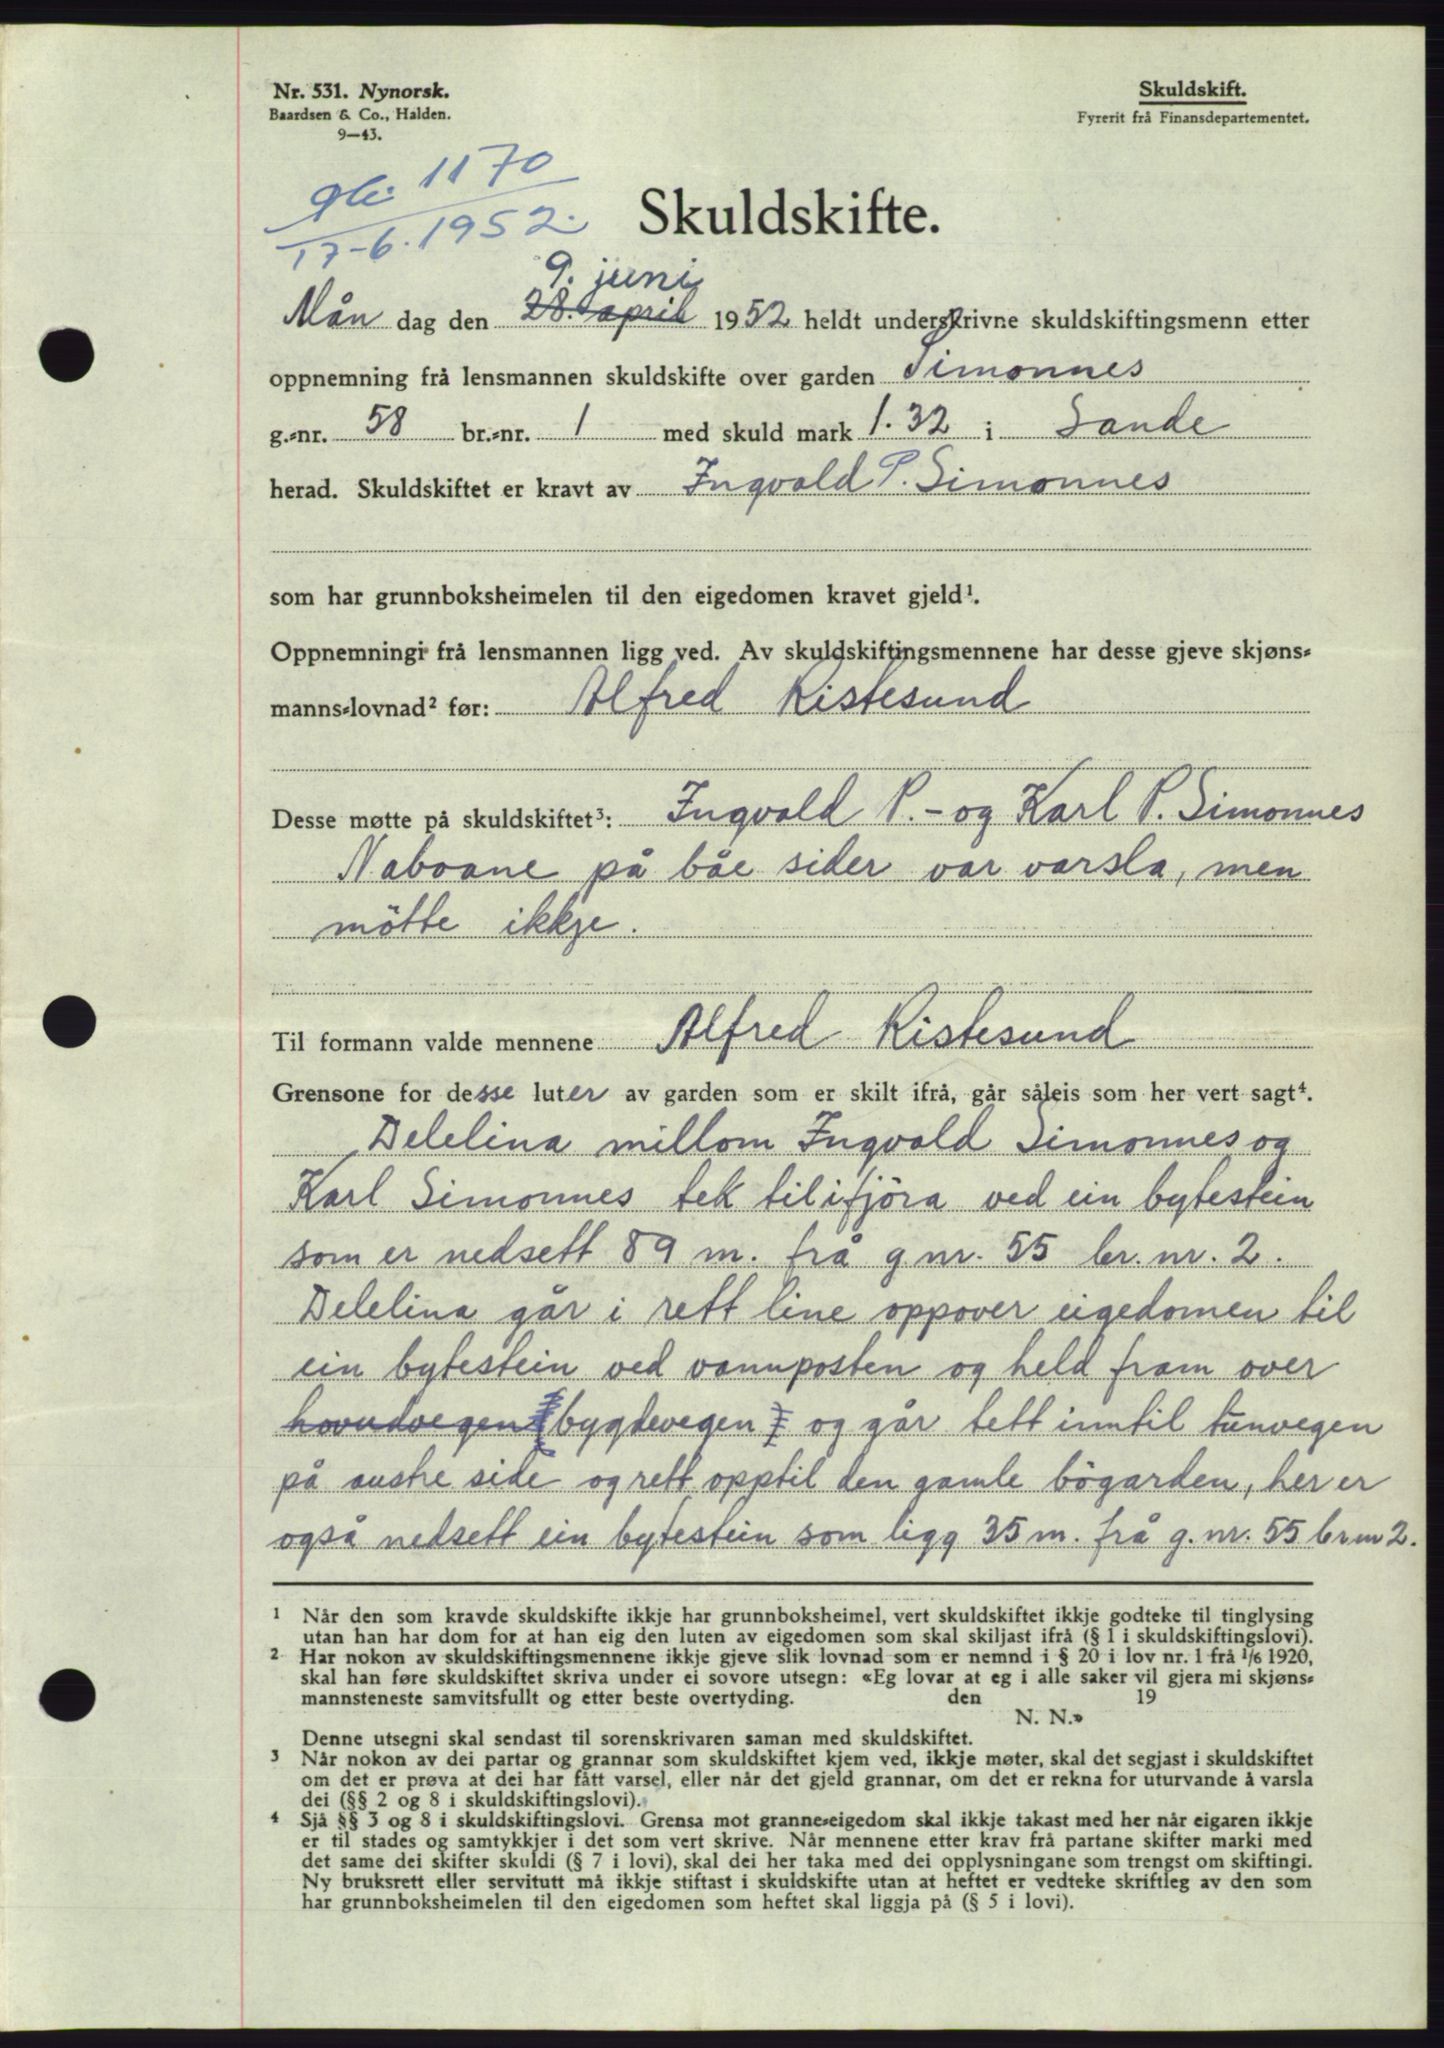 Nr. 531. Nynorsk.
Baardsen & Co., Halden.
9—43.
Skuldskift.
Fyrerit frå Finansdepartementet.
1170
17-6. 1952.
Skuldskifte.
9. juni
Mån dag den 28. april 1952 heldt underskrivne skuldskiftingsmenn etter
oppnemning frå lensmannen skuldskifte over garden Simonnes
g.-nr. 58 br.-nr. 1 med skuld mark 1.32 i Sande
herad. Skuldskiftet er kravt av Ingvald P. Simonnes
som har grunnboksheimelen til den eigedomen kravet gjeld¹.
Oppnemningi frå lensmannen ligg ved. Av skuldskiftingsmennene har desse gjeve skjøns-
manns-lovnad² før: Alfred Kistesund
Desse møtte på skuldskiftet³: Ingvald P.- og Karl P. Simonnes
Naboane på båe sider var varsla, men
mötte ikkje.
Til formann valde mennene Alfred Kistesund
Grensone for desse luter av garden som er skilt ifrå, går såleis som her vert sagt⁴.
Delelina millom Ingvald Simonnes og
Karl Simonnes tek til i fjöra ved ein bytestein
som er nedsett 89 m. frå g nr. 55 br. nr. 2.
Delelina går i rett line oppover eigedomen til
ein bytestein ved vannposten og held fram over
hovudvegen bygdevegen og går tett inntil tunvegen
på austre side og rett opptil den gamle bögarden, her er
også nedsett ein bytestein som ligg 35 m. frå g. nr. 55 br nr 2.
1 Når den som kravde skuldskifte ikkje har grunnboksheimel, vert skuldskiftet ikkje godteke til tinglysing
utan han har dom for at han eig den luten av eigedomen som skal skiljast ifrå (§ 1 i skuldskiftingslovi).
2 Har nokon av skuldskiftingsmennene ikkje gjeve slik lovnad som er nemnd i § 20 i lov nr. 1 frå 1/6 1920,
skal han føre skuldskiftet skriva under ei sovore utsegn: «Eg lovar at eg i alle saker vil gjera mi skjøns-
mannsteneste samvitsfullt og etter beste overtyding. den 19
N. N.»
Denne utsegni skal sendast til sorenskrivaren saman med skuldskiftet.
3 Når nokon av dei partar og grannar som skuldskiftet kjem ved, ikkje møter, skal det segjast i skuldskiftet
om det er prøva at dei har fått varsel, eller når det gjeld grannar, om det er rekna for uturvande å varsla
dei (§§ 2 og 8 i skuldskiftingslovi).
4 Sjå §§ 3 og 8 i skuldskiftingslovi. Grensa mot granne-eigedom skal ikkje takast med her når eigaren ikkje
er til stades og samtykkjer i det som vert skrive. Når mennene etter krav frå partane skifter marki med
det same dei skifter skuldi (§ 7 i lovi), skal dei her taka med dei opplysningane som trengst om skiftingi.
Ny bruksrett eller servitutt må ikkje stiftast i skuldskifte utan at heftet er vedteke skriftleg av den som
har grunnboksheimelen til den eigedomen som heftet skal liggja på (§ 5 i lovi).